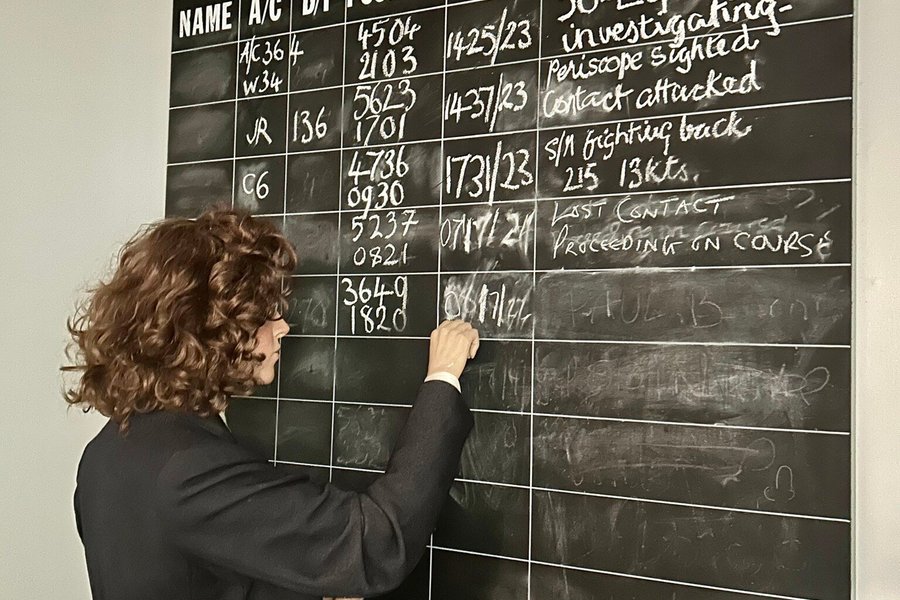 NAME A/C
4504 1425/23
A/C 36 4 2103 investigating-
W34 Periscope sighted
5623 1437/23 Contact attacked
JR 136 1701
4736 1731/23 S/M fighting back
C6 0930 215 13kts.
5237 LOST CONTACT
0821 PROCEEDING ON COURSE
3649
1820